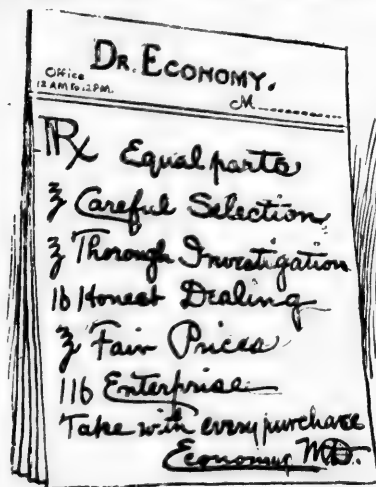 DR. ECONOMY.
Office
12 AM to 12 PM.
M
Rx Equal parts
ʒ Careful Selection
ʒ Thorough Investigation
lb Honest Dealing
ʒ Fair Prices
1 lb Enterprise
Take with every purchase
Economy M.D.